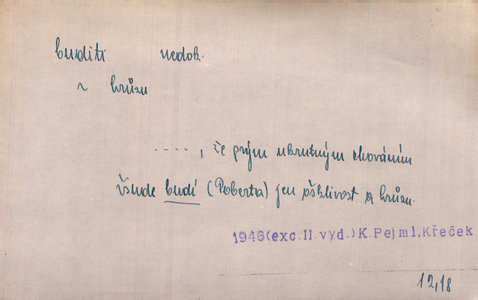 buditi nedok.
~ hrůzu
....., že prým ukrutným chováním
všude budí (Roberta) jen ošklivost a hrůzu.
1946(exc.II.vyd.)K.Pejml,Křeček
12,18